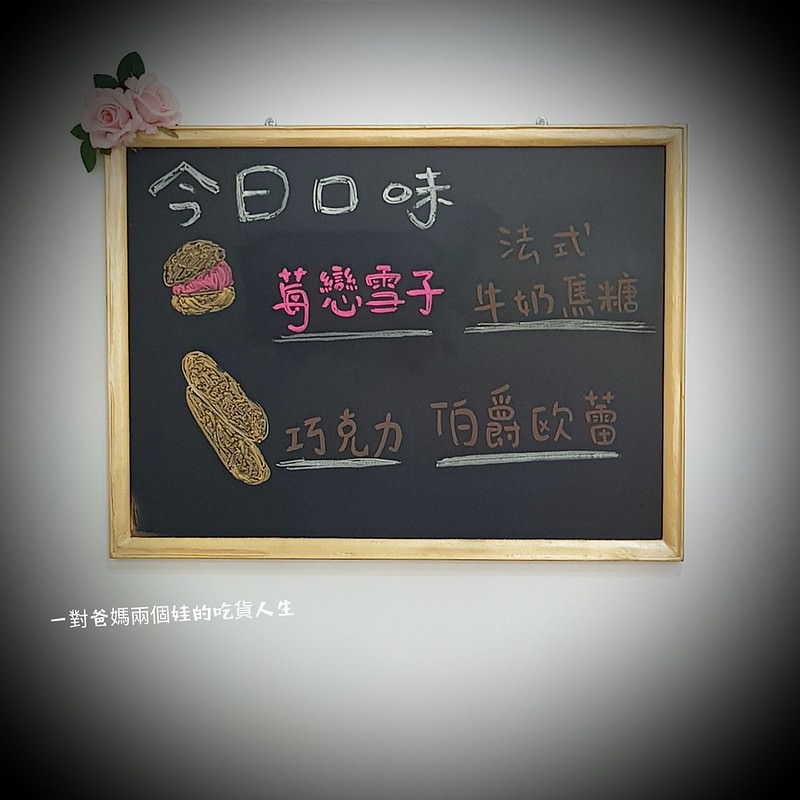 今日口味
莓戀雪子
法式
牛奶焦糖
巧克力
伯爵欧蕾
一對爸媽兩個娃的吃貨人生